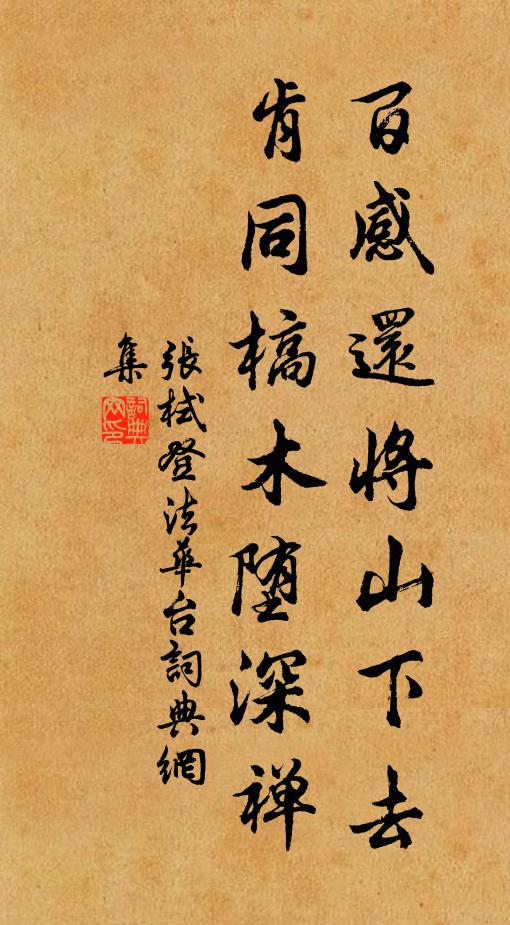 百感還將山下去
肯同槁木堕深禅
張栻登法華台詞典網
集
詞典网印